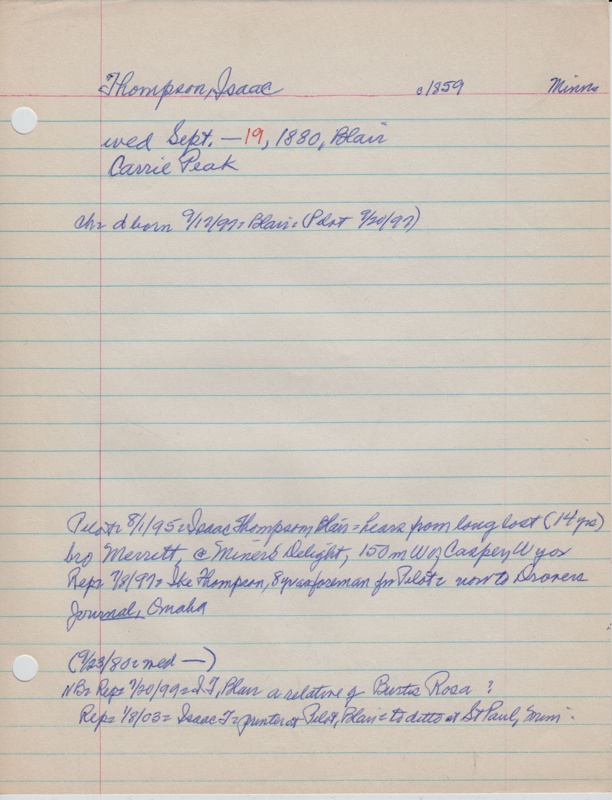 Thompson, Isaac c1859 Minns
wed Sept. — 19, 1880, Blair
Carrie Peak
ch= d born 9/17/97= Blair= (Pilot 9/20/97)
Pilot= 8/1/95= Isaac Thompson, Blair= hears from long lost (14 yrs)
bro Merrett @ Miner's Delight, 150 m W of Casper, Wyo
Rep= 7/8/97= Ike Thompson, 8 yrs a foreman for Pilot= now to Drovers
Journal, Omaha
(9/23/80= wed —)
NB= Rep= 7/20/99= I T, Blair a relative of Burtis Rosa ?
Rep= 1/8/03= Isaac T= printer at Pilot, Blair= to ditto at St Paul, Minn.